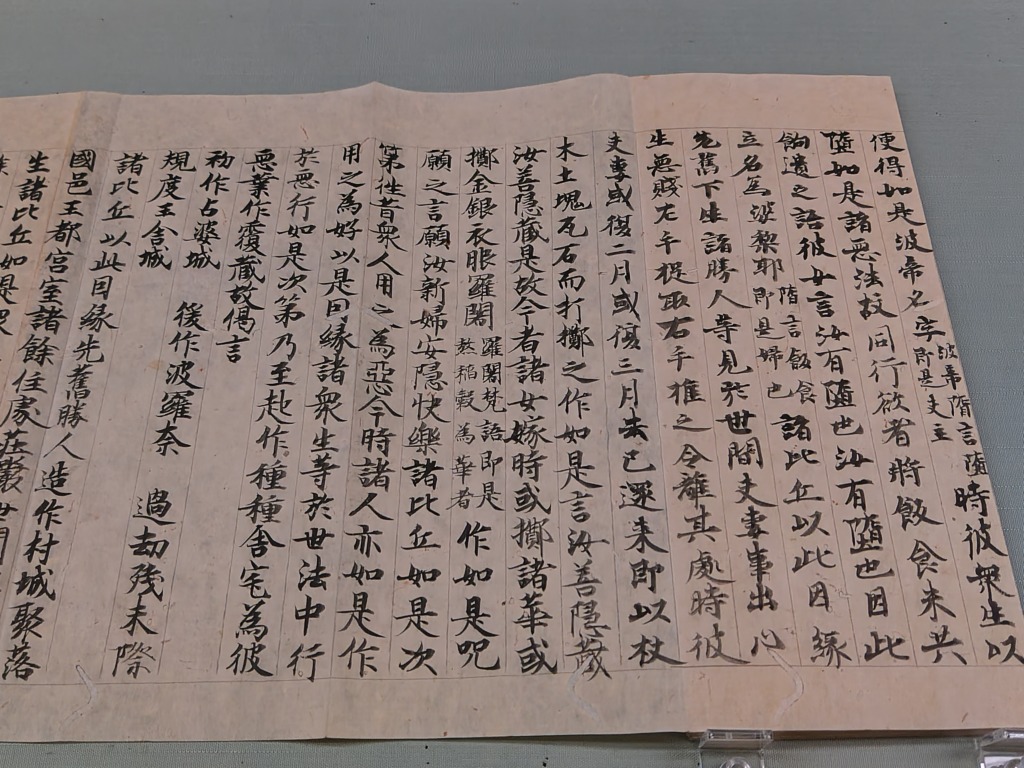 便得如是波帝名字波帝隋言墮即是夫主時彼衆生以
墮如是諸惡法故同行欲者將飯食来共
餉遺之語彼女言汝有墮也汝有墮也因此
立名為婆梨耶隋言飯食即是婦也諸比丘以此因緣
先舊下生諸勝人等見於世間夫妻事出心
生惡賤左手捉取右手推之令離其處時彼
夫妻或復二月或復三月去已還来即以杖
木土塊瓦石而打擲之作如是言汝善隱藏
汝善隱藏是故今者諸女嫁時或擲諸華或
擲金銀衣服羅闍羅闍梵語即是熬稻穀為華者作如是呪
願之言願汝新婦安隱快樂諸比丘如是次
第往昔衆人用之為惡今時諸人亦如是作
用之為好以是因緣諸衆生等於世法中行
於惡行如是次第乃至起作種種舍宅為彼
惡業作覆藏故偈言
初作占婆城 後作波羅奈 過劫殘末際
規度王舍城
諸比丘以此因緣先舊勝人造作村城聚落
國邑王都宮室諸餘住處莊嚴世間
生諸比丘如是衆